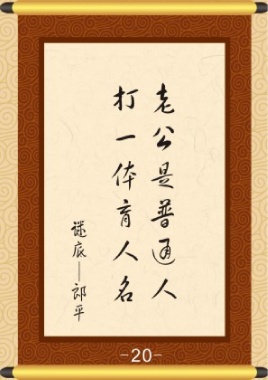 老公是普通人
打一体育人名
谜底——郎平
-20-